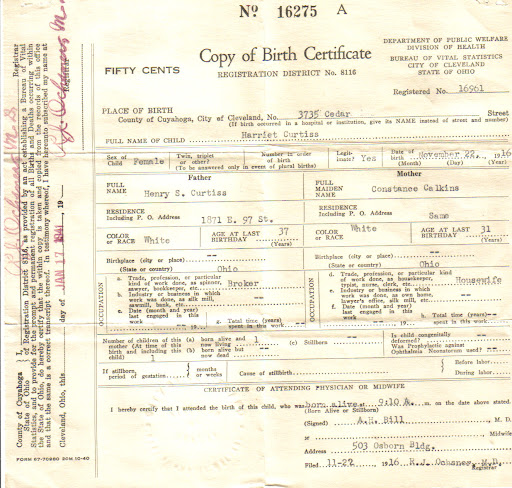 Nº 16275 A
DEPARTMENT OF PUBLIC WELFARE
DIVISION OF HEALTH
BUREAU OF VITAL STATISTICS
CITY OF CLEVELAND
STATE OF OHIO
FIFTY CENTS
Copy of Birth Certificate
REGISTRATION DISTRICT No. 8116
Registered No. 16961
PLACE OF BIRTH
County of Cuyahoga, City of Cleveland, No. 3735 Cedar Street
(If birth occurred in a hospital or institution, give its NAME instead of street and number)
FULL NAME OF CHILD Harriet Curtiss
Sex of Child Female
Twin, triplet or other?
Number in order of birth
(To be answered only in event of plural births)
Legitimate? Yes
Date of birth November 22, 1916
(Month) (Day) (Year)
Father
FULL NAME Henry S. Curtiss
RESIDENCE Including P. O. Address 1871 E. 97 St.
COLOR OR RACE White
AGE AT LAST BIRTHDAY 37 (Years)
Birthplace (city or place) --
(State or country) Ohio
OCCUPATION
a. Trade, profession, or particular kind of work done, as spinner, sawyer, bookkeeper, etc. Broker
b. Industry or business in which work was done, as silk mill, sawmill, bank, etc.
c. Date (month and year) last engaged in this work --
g. Total time (years) spent in this work --
Mother
FULL MAIDEN NAME Constance Calkins
RESIDENCE Including P. O. Address Same
COLOR OR RACE White
AGE AT LAST BIRTHDAY 31 (Years)
Birthplace (city or place) --
(State or country) Ohio
OCCUPATION
d. Trade, profession, or particular kind of work done, as housekeeper, typist, nurse, clerk, etc. Housewife
e. Industry or business in which work was done, as own home, lawyer's office, silk mill, etc.
f. Date (month and year) last engaged in this work --
h. Total time (years) spent in this work --
Number of children of this mother (At time of this birth and including this child) 1
(a) born alive and now living 1
(b) born alive but now dead
(c) Stillborn --
Is child congenitally deformed?
Was Prophylactic against Ophthalmia Neonatorum used? --
If stillborn, period of gestation
months or weeks
Cause of stillbirth
Before labor
During labor
CERTIFICATE OF ATTENDING PHYSICIAN OR MIDWIFE
I hereby certify that I attended the birth of this child, who was born alive at 9:10 A. m. on the date above stated.
(Born Alive or Stillborn)
(Signed) A.H. Bill, M. D.
or Midwife
Address 503 Osborn Bldg.
Filed 11-22 1916 R.J. Ochsner, M.D.
FORM 67-70880 50M 10-40
County of Cuyahoga
State of Ohio
I, Registrar
of Registration District 8116, as provided by an act establishing a Bureau of Vital
Statistics, and to provide for the prompt and permanent registration of all Births and Deaths occurring within
the State of Ohio, do hereby certify that the within copy is taken and copied from the records of this office
and that the same is a correct transcript thereof. In testimony whereof, I have hereunto subscribed my name at
Cleveland, Ohio, this day of JAN 17 1941, 19